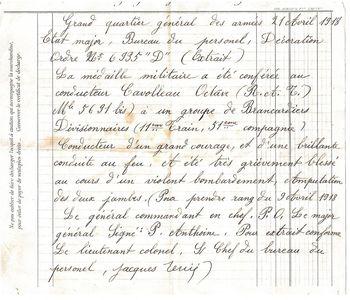 Grand quartier général des armées 21 Avril 1918
Etat major, Bureau du personel, Décoration
Ordre Nos 6935 "D" (Extrait)
La médaille militaire a été conféré au
conducteur Cavolleau Octave (R.A.T.)
Mle 5691 bis) à un groupe de Brancardiers
Divisionnaires (11ème Train, 51ème compagnie)
Conducteur d'un grand courage, et d'une brillante
conduite au feu, et été très grièvement blessé
au cours d'un violent bombardement, Amputation
des deux jambes. (Pour prendre rang du 3 Avril 1918
Le général commandant en chef, P.O. Le major
général Signé: P. Anthoine, Pour extrait conforme
Le lieutenant colonel, S/ Chef du bureau du
personel, jacques
Ne pas oublier de faire décharger l'acquit à caution qui accompagne la marchandise,
pour éviter de payer de multiples droits. Conserver le certificat de décharge.